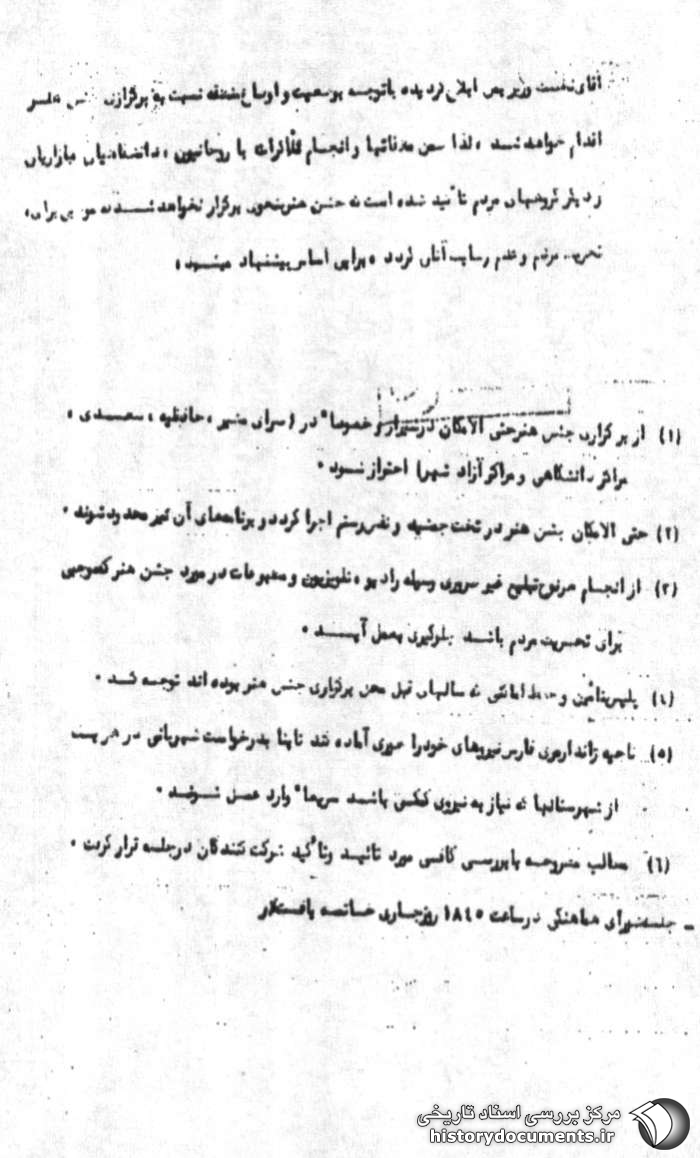 آقای نخست وزیر ابلاغ گردیده باتوجه بوضعیت و اوضاع منطقه نسبت به برگزاری جشن هنر
اقدام خواهد شد ، لذا مقامات و انجام مذاکرات با روحانیون ، دانشگاهیان بازاریان
و دیگر گروههای مردم تأکید شده است که جشن هنر بنحوی برگزار نخواهد شد که موجبی برای
تحریک مردم و عدم رضایت آنان گردد ، براین اساس پیشنهاد میشود ،
(۱) از برگزاری جشن هنر حتی الامکان در شیراز و خصوصا" در ( سرای مشیر ، حافظیه ، سعدی ،
مراکز دانشگاهی و مراکز آزاد شهر) احتراز شود ۰
(۲) حتی الامکان جشن هنر در تخت جمشید و نقش رستم اجرا گردد و برنامه‌های آن نیز محدود شوند ۰
(۳) از انجام هرنوع تبلیغ غیر ضروری وسیله رادیو ، تلویزیون و مطبوعات در مورد جشن هنر که موجبی
برای تحریک مردم باشد جلوگیری بعمل آید ۰
(٤) بایستی بتأمین و حفظ اماکنی که سالهای قبل محل برگزاری جشن هنر بوده اند توجه شد ۰
(۵) ناحیه ژاندارمری فارس نیروهای خود را طوری آماده کند تا بنا بدرخواست شهربانی در هر یک
از شهرستانها که نیاز به نیروی کمکی باشد سریعا" وارد عمل شوند ۰
(٦) مطالب مشروحه با بررسی کافی مورد تائید و تأکید شرکت کنندگان در جلسه قرار گرفت ۰
ـ جلسه شورای هماهنگی در ساعت ۱۸٤۵ روز جاری خاتمه یافت
مرکز بررسی اسناد تاریخی
historydocuments.ir